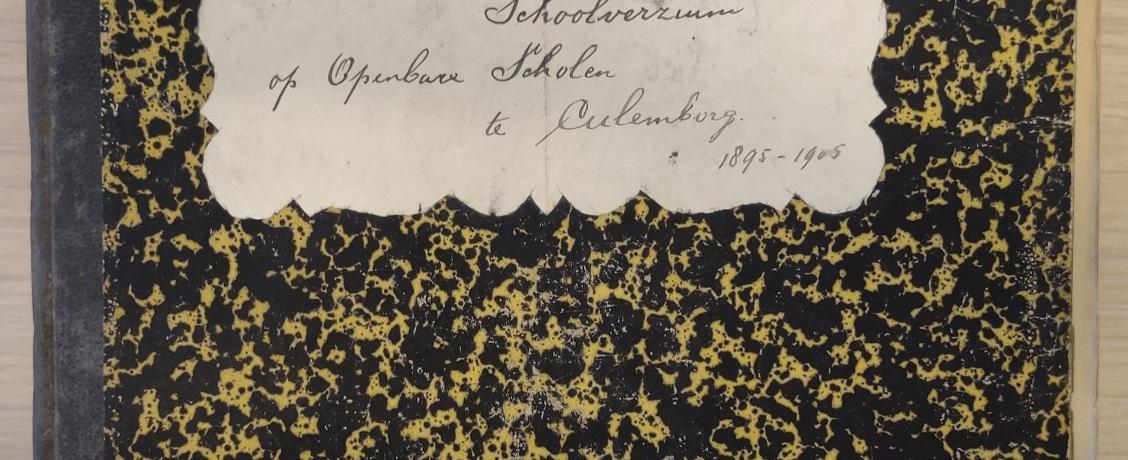 Schoolverzuim
op Openbare Scholen
te Culemborg.
1895-1905